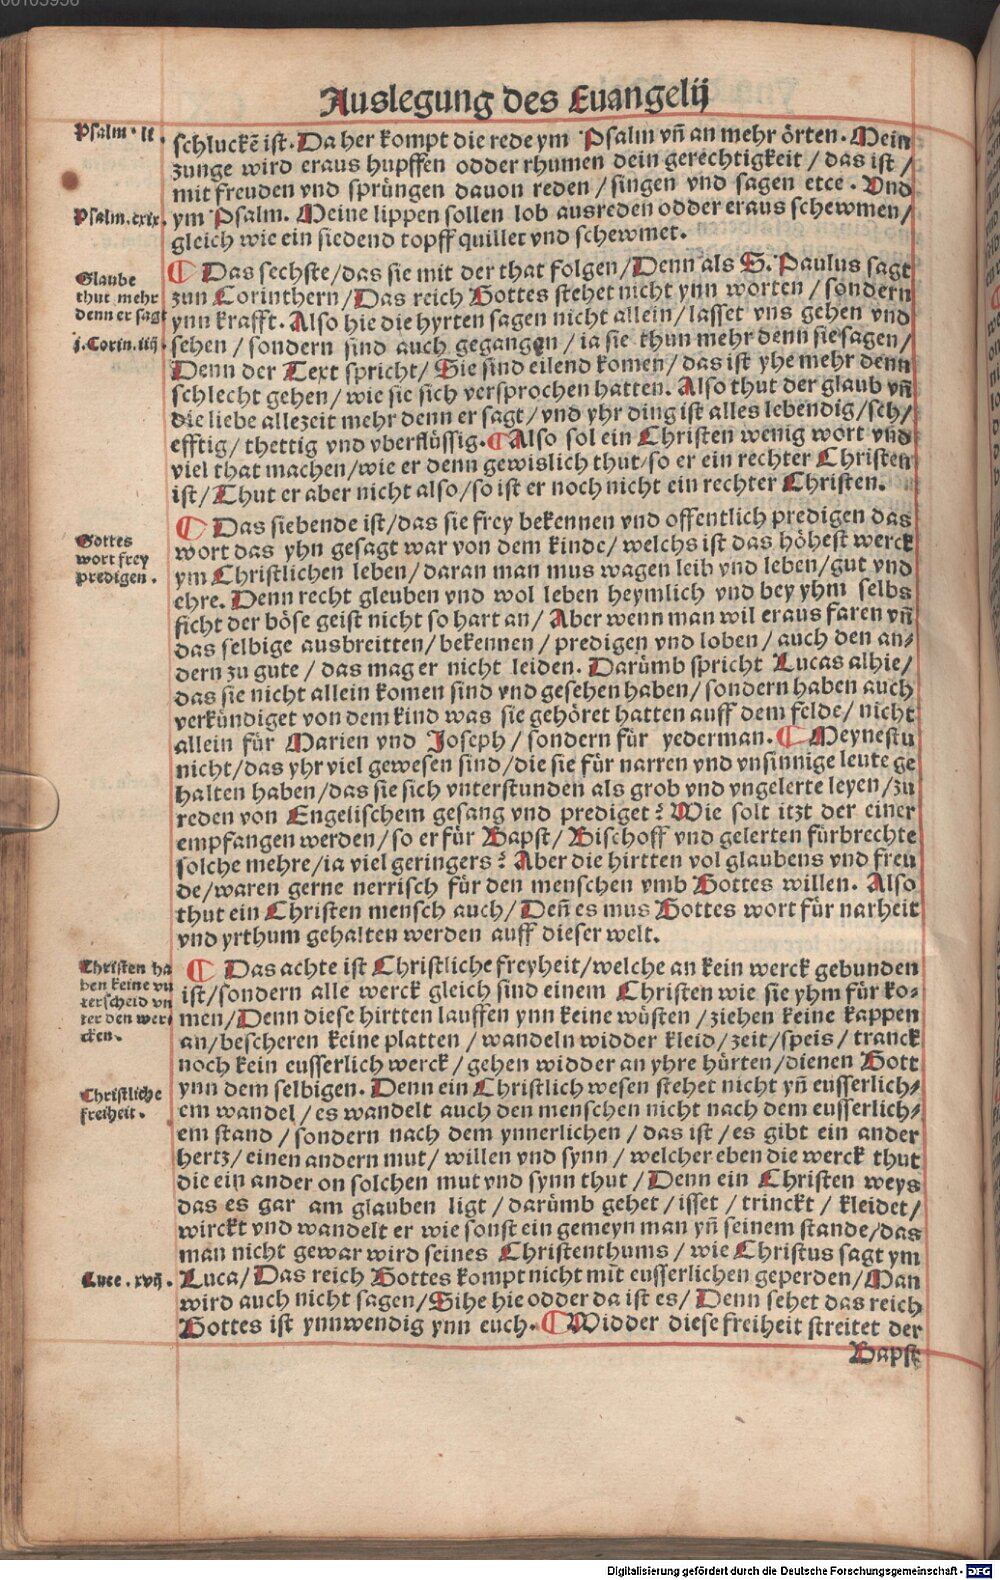 Auslegung des Euangelij
Psalm . li .
schluckẽ ist. Da her kompt die rede ym Psalm vñ an mehr örten. Mein
zunge wird eraus hupffen odder rhumen dein gerechtigkeit / das ist /
mit freuden vnd sprüngen dauon reden / singen vnd sagen etce . Vnd
Psalm. cxix.
ym Psalm. Meine lippen sollen lob ausreden odder eraus schewmen /
gleich wie ein siedend topff quillet vnd schewmet.
Glaube
thut mehr
denn er sagt
j. Corin. iiij .
¶ Das sechste / das sie mit der that folgen / Denn als S. Paulus sagt
zun Corinthern / Das reich Gottes stehet nicht ynn worten / sondern
ynn krafft. Also hie die hyrten sagen nicht allein / lasset vns gehen vnd
sehen / sondern sind auch gegangen / ia sie thun mehr denn sie sagen /
Denn der Text spricht / Sie sind eilend komen / das ist yhe mehr denn
schlecht gehen / wie sie sich versprochen hatten. Also thut der glaub vñ
die liebe allezeit mehr denn er sagt / vnd yhr ding ist alles lebendig / sch/
efftig / thettig vnd vberflüssig. ¶ Also sol ein Christen wenig wort vnd
viel that machen / wie er denn gewislich thut / so er ein rechter Christen
ist / Thut er aber nicht also / so ist er noch nicht ein rechter Christen.
Gottes
wort frey
predigen .
¶ Das siebende ist / das sie frey bekennen vnd offentlich predigen das
wort das yhn gesagt war von dem kinde / welchs ist das höhest werck
ym Christlichen leben / daran man mus wagen leib vnd leben / gut vnd
ehre. Denn recht gleuben vnd wol leben heymlich vnd bey yhm selbs
ficht der böse geist nicht so hart an / Aber wenn man wil eraus faren vñ
das selbige ausbreitten / bekennen / predigen vnd loben / auch den an-
dern zu gute / das mag er nicht leiden. Darümb spricht Lucas alhie /
das sie nicht allein komen sind vnd gesehen haben / sondern haben auch
verkündiget von dem kind was sie gehöret hatten auff dem felde / nicht
allein für Marien vnd Joseph / sondern für yederman. ¶ Meynestu
nicht / das yhr viel gewesen sind / die sie für narren vnd vnsinnige leute ge
halten haben / das sie sich vnterstunden als grob vnd vngelerte leyen / zu
reden von Engelischem gesang vnd prediget? Wie solt itzt der einer
empfangen werden / so er für Bapst / Bischoff vnd gelerten fürbrechte
solche mehre / ia viel geringers? Aber die hirtten vol glaubens vnd freu
de / waren gerne nerrisch für den menschen vmb Gottes willen. Also
thut ein Christen mensch auch / Deñ es mus Gottes wort für narheit
vnd yrthum gehalten werden auff dieser welt.
Christen ha
ben keine vn
terscheid vn
ter den wer
cken.
¶ Das achte ist Christliche freyheit / welche an kein werck gebunden
ist / sondern alle werck gleich sind einem Christen wie sie yhm für ko-
men / Denn diese hirtten lauffen ynn keine wüsten / ziehen keine kappen
an / bescheren keine platten / wandeln widder kleid / zeit / speis / tranck
noch kein eusserlich werck / gehen widder an yhre hürten / dienen Gott
Christliche
freiheit .
ynn dem selbigen. Denn ein Christlich wesen stehet nicht yñ eusserlich/
em wandel / es wandelt auch den menschen nicht nach dem eusserlich/
em stand / sondern nach dem ynnerlichen / das ist / es gibt ein ander
hertz / einen andern mut / willen vnd synn / welcher eben die werck thut
die ein ander on solchen mut vnd synn thut / Denn ein Christen weys
das es gar am glauben ligt / darümb gehet / isset / trinckt / kleidet /
wirckt vnd wandelt er wie sonst ein gemeyn man yñ seinem stande / das
man nicht gewar wird seines Christenthums / wie Christus sagt ym
Luce . xvij .
Luca / Das reich Gottes kompt nicht mit eusserlichen geperden / Man
wird auch nicht sagen / Sihe hie odder da ist es / Denn sehet das reich
Gottes ist ynnwendig ynn euch. ¶ Widder diese freiheit streitet der
Bapst
Digitalisierung gefördert durch die Deutsche Forschungsgemeinschaft - DFG